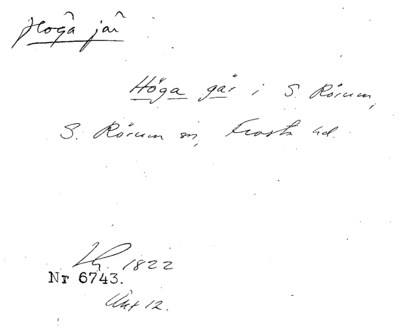 Hogâ jâr
Höga går i S. Rörum,
S. Rörum sn, Frosta hd.
1822
Nr 6743.
12.